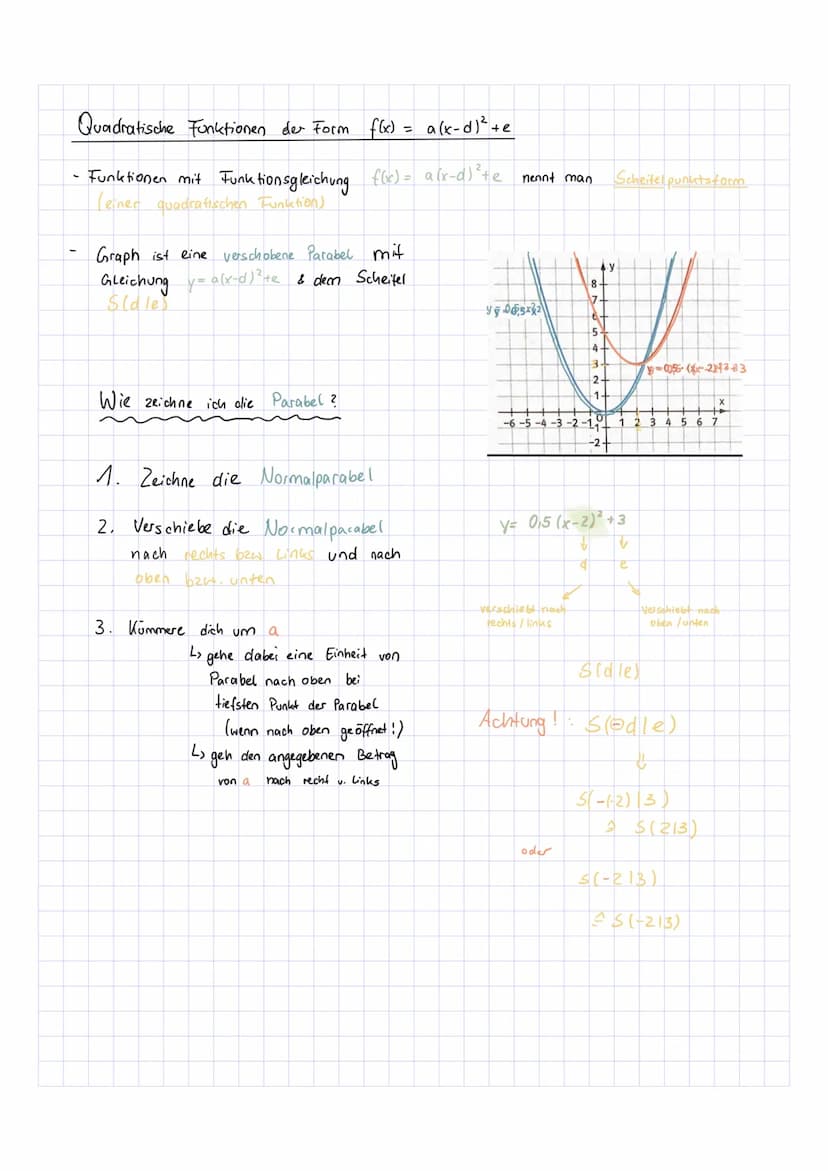 Quadratische Funktionen der Form f(x) = a(x-d)²+e
- Funktionen mit Funktionsgleichung f(x) = a(x-d)²+e nennt man Scheitelpunktsform
(einer quadratischen Funktion)
- Graph ist eine verschobene Parabel mit
Gleichung y= a(x-d)²+e & dem Scheitel
S(d|e)
Wie zeichne ich die Parabel?
1. Zeichne die Normalparabel
2. Verschiebe die Normalparabel
nach rechts bzw. Links und nach
oben bzw. unten
3. Kümmere dich um a
↳ gehe dabei eine Einheit von
Parabel nach oben bei
tiefsten Punkt der Parabel
(wenn nach oben geöffnet!)
↳ geh den angegebenen Betrag
von a nach recht u. Links
y
8
7
6
5
4
3
2
1
0
-1
-2
x
-6 -5 -4 -3 -2 -1 1 2 3 4 5 6 7
y= 0,5 (x-2)² +3
d e
verschiebt nach
rechts / links
verschiebt nach
oben / unten
S(d|e)
Achtung! : S(⊖d|e)
⇓
S(-(-2)|3)
≙ S(2|3)
oder
S(-2|3)
≙ S(-2|3)